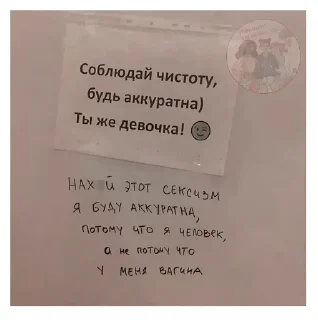 Соблюдай чистоту,
будь аккуратна)
Ты же девочка!
НАХ Й ЭТОТ СЕКСИЗМ
Я БУДУ АККУРАТНА,
ПОТОМУ ЧТО Я ЧЕЛОВЕК,
а не потому что
У МЕНЯ ВАГИНА